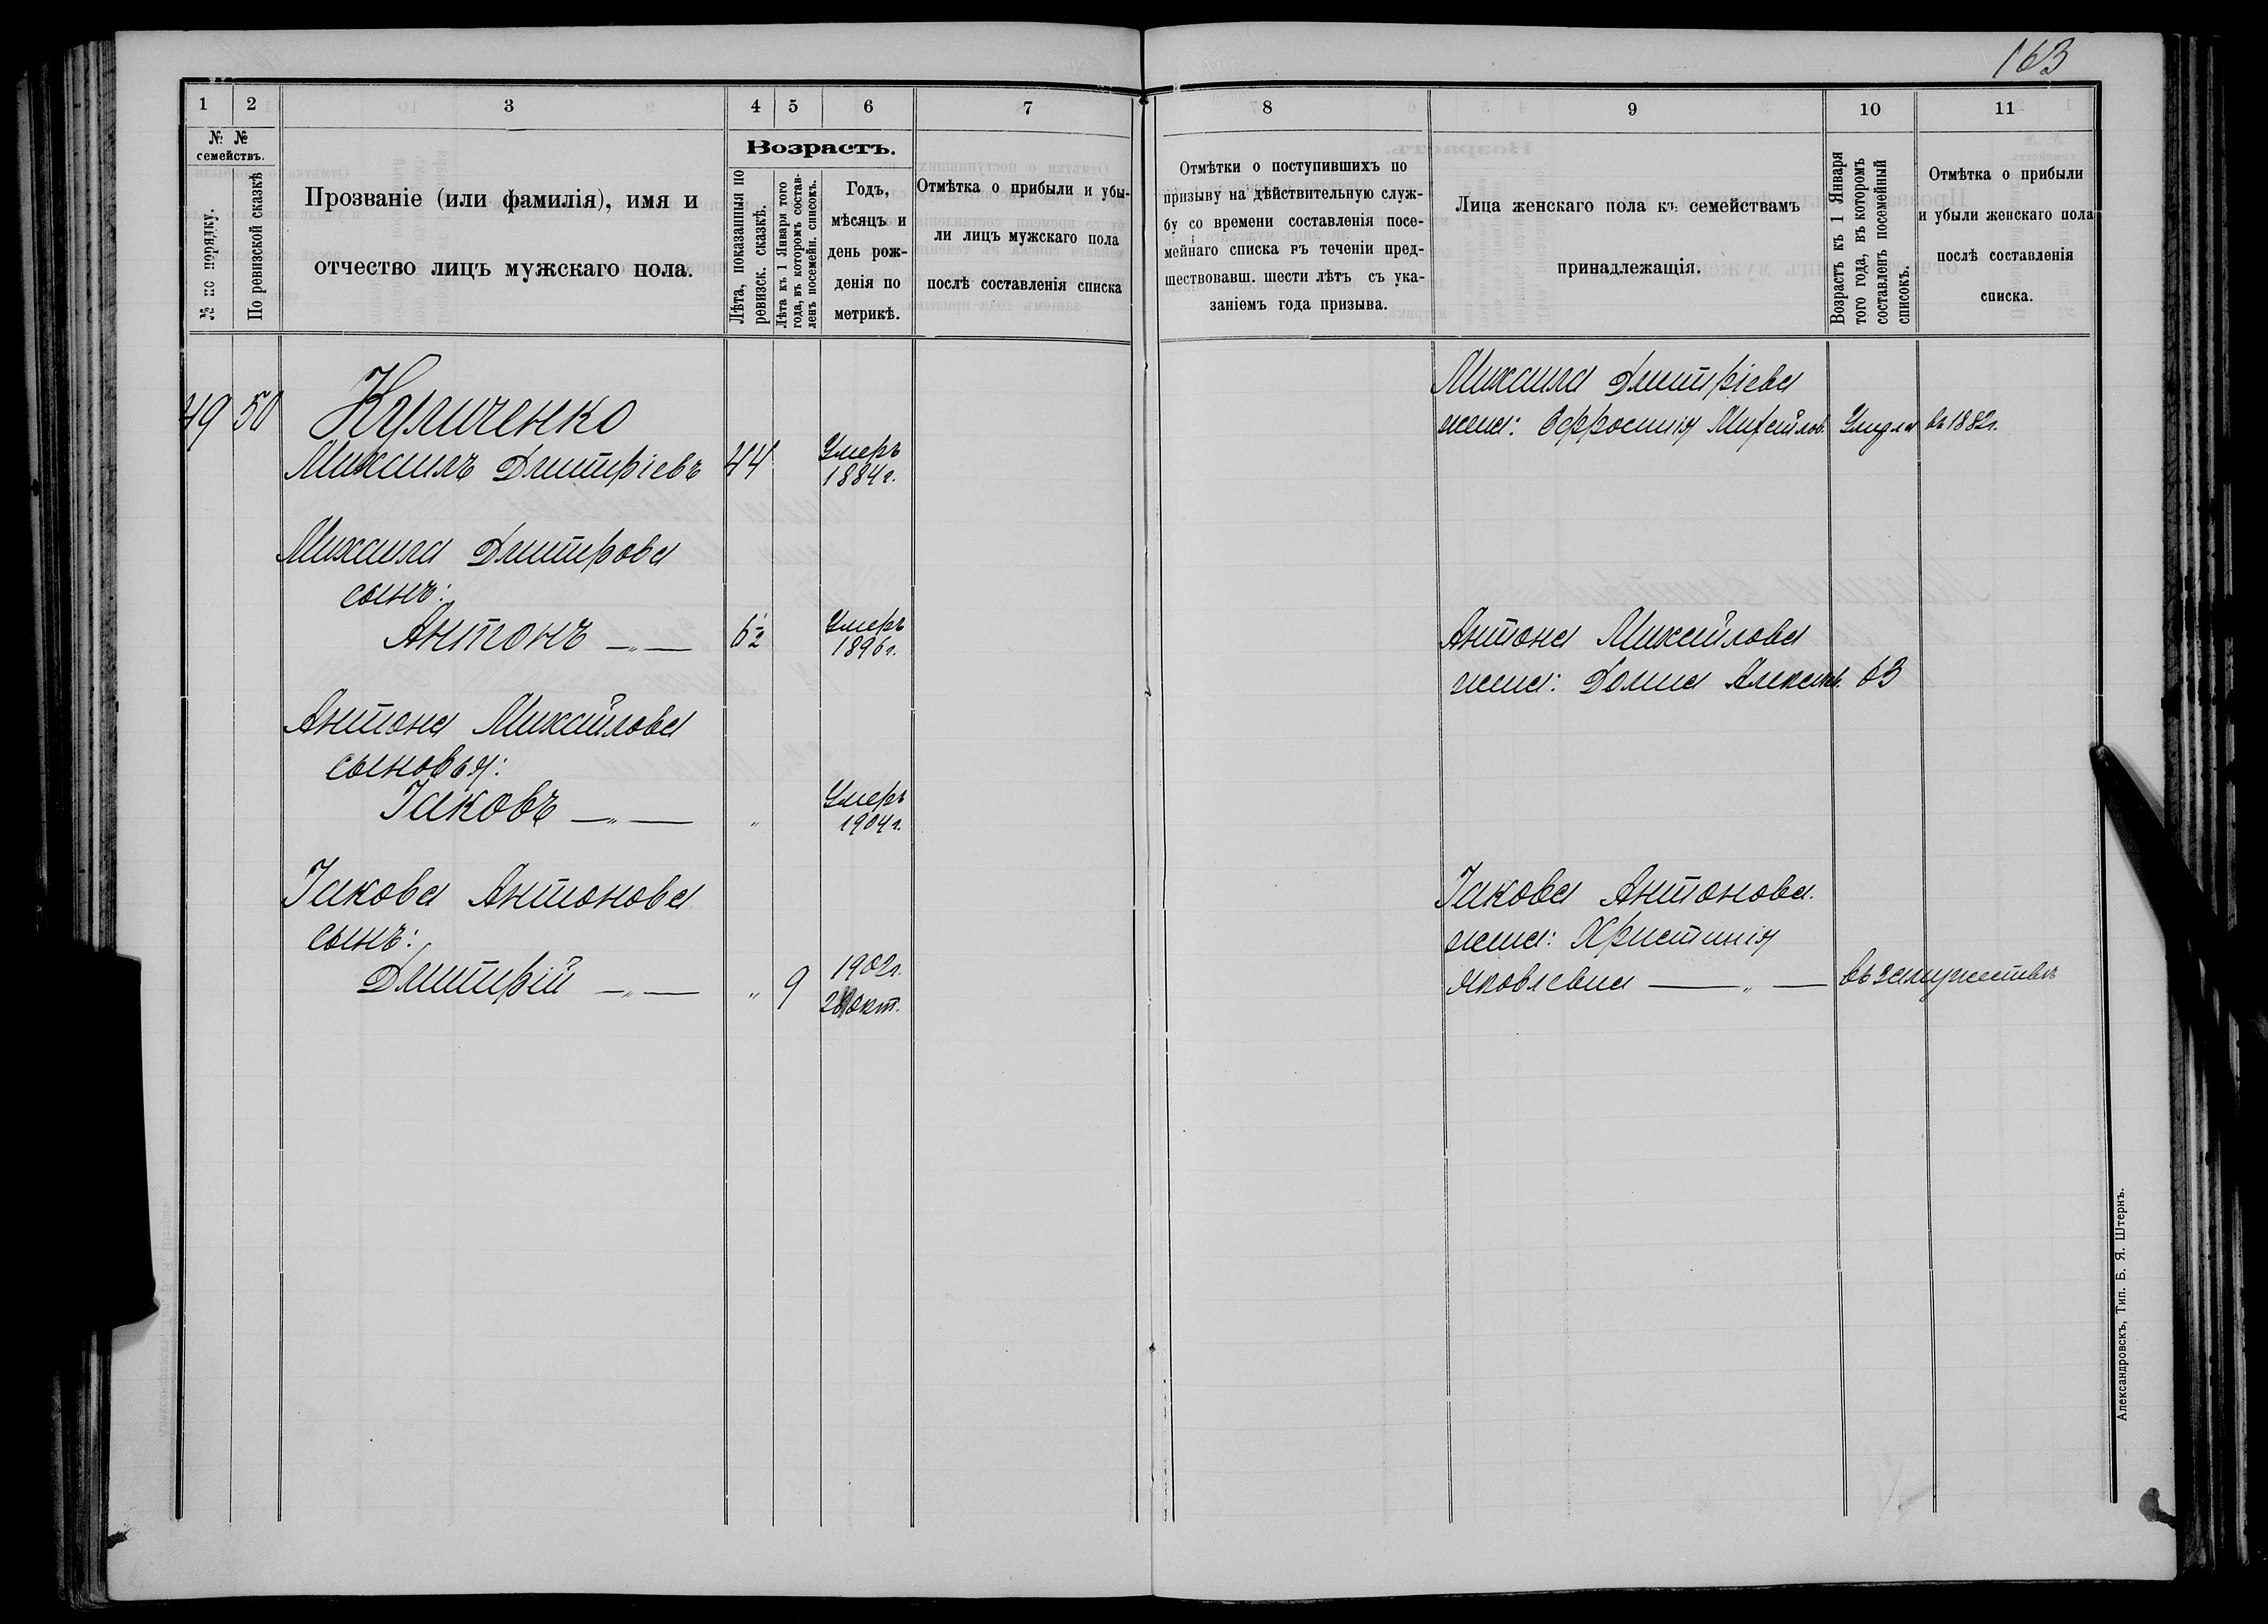 163
1 2 3 4 5 6 7
№ № семействъ.
№ по порядку.
По ревизской сказкѣ
Прозваніе (или фамилія), имя и
отчество лицъ мужскаго пола.
Возрастъ.
Лѣта, показанныя по
ревизск. сказкѣ.
Лѣта къ 1 Января того
года, въ которомъ состав-
ленъ посемейн. списокъ.
Годъ,
мѣсяцъ и
день рож-
денія по
метрикѣ.
Отмѣтка о прибыли и убы-
ли лицъ мужскаго пола
послѣ составленія списка
49 50
Куличенко
Михаилъ Дмитріевъ 44 Умеръ
1884 г.
Михаила Дмитрова
сынъ:
Антонъ —„— 6½ Умеръ
1896 г.
Антона Михайлова
сыновья:
Іаковъ —„— „ Умеръ
1904 г.
Іакова Антонова
сынъ:
Дмитрій —„— „ 9 1902 г.
окт.
8 9 10 11
Отмѣтки о поступившихъ по
призыву на дѣйствительную служ-
бу со времени составленія посе-
мейнаго списка въ теченіи пред-
шествовавш. шести лѣтъ съ ука-
заніемъ года призыва.
Лица женскаго пола къ семействамъ
принадлежащія.
Возрастъ къ 1 Января
того года, въ которомъ
составленъ посемейный
списокъ.
Отмѣтка о прибыли
и убыли женскаго пола
послѣ составленія
списка.
Михаила Дмитріева
жена: Ефросинія Михайлов. Умерла въ 1882 г.
Антона Михайлова
жена: Домна 63
Іакова Антонова.
жена: Христинія
Яковлевна —„— въ замужествѣ
Александровскъ, Тип. Б. Я. Штернъ.